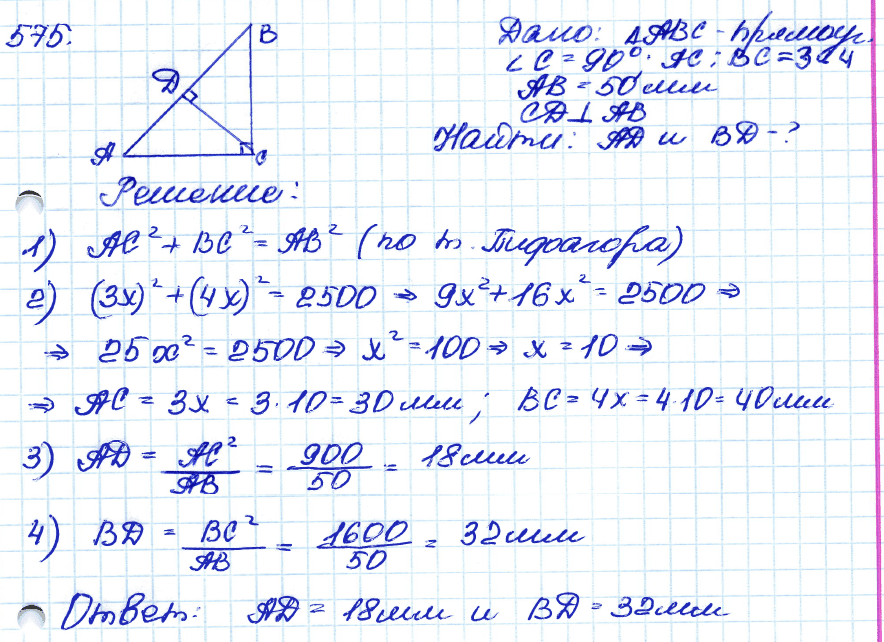 575.
B
D
A
C
Дано: △ABC - прямоуг.
∠C = 90°. AC : BC = 3:4
AB = 50 мм
CD⊥AB
Найти: AD и BD - ?
Решение:
1) AC² + BC² = AB² (по т. Пифагора)
2) (3x)² + (4x)² = 2500 ⇒ 9x² + 16x² = 2500 ⇒
⇒ 25x² = 2500 ⇒ x² = 100 ⇒ x = 10 ⇒
⇒ AC = 3x = 3·10 = 30 мм; BC = 4x = 4·10 = 40 мм
3) AD = AC²/AB = 900/50 = 18 мм
4) BD = BC²/AB = 1600/50 = 32 мм
Ответ: AD = 18 мм и BD = 32 мм